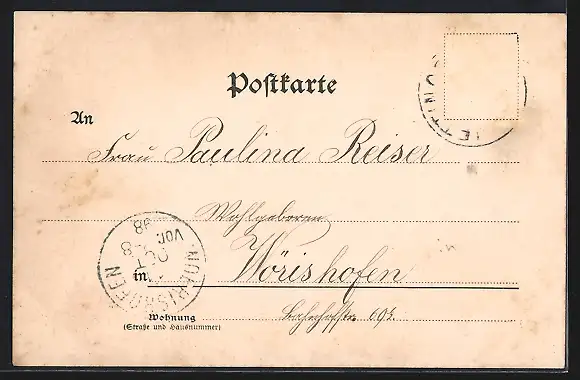 Postkarte
An
Frau Paulina Reiser
Wohlgeboren
in Wörishofen
Wohnung
(Straße und Hausnummer)
Bahnhofstr. 69¾
WÖRISHOFEN
OCT
Vor.
98